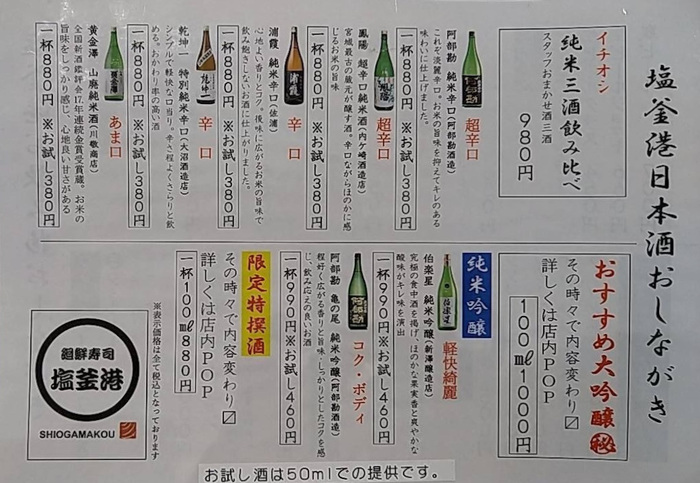 塩釜港日本酒おしながき
イチオシ
純米三酒飲み比べ
スタッフおまかせ酒三酒
980円
阿部勘 純米辛口(阿部勘酒造)
超辛口
これぞ淡麗辛口。お米の旨味を抑えてキレのある
味わいに仕上げました。
一杯880円 ※お試し380円
鳳陽 超辛口純米酒(内ケ崎酒造店)
超辛口
宮城最古の蔵元が醸す酒。辛口ながらほのかに感
じるお米の旨味
一杯880円 ※お試し380円
浦霞 純米辛口(佐浦)
辛口
心地よい香りとコク。後味に広がるお米の旨味で
飲み飽きしないお酒に仕上がりました。
一杯880円 ※お試し380円
乾坤一 特別純米辛口(大沼酒造店)
辛口
シンプルで軽快な口当り。辛さ程よくさらりと飲
める。おかわり率の高い酒
一杯880円 ※お試し380円
黄金澤 山廃純米酒(川敬商店)
あま口
全国新酒鑑評会17年連続金賞受賞蔵。お米の
旨味をしっかり感じ、心地良い甘さがある
一杯880円 ※お試し380円
おすすめ大吟醸㊙
その時々で内容変わり〼
詳しくは店内POP
100ml1000円
純米吟醸
伯楽星 純米吟醸(新澤醸造店)
軽快綺麗
究極の食中酒を掲げ、ほのかな果実香と爽やかな
酸味がキレ味を演出
一杯990円※お試し460円
阿部勘 亀の尾 純米吟醸(阿部勘酒造)
コク・ボディ
程好く広がる香りと旨味・しっかりとしたコクを感
じ、飲み応えの良いお酒
一杯990円※お試し460円
限定特撰酒
その時々で内容変わり〼
詳しくは店内POP
一杯100ml880円
※表示価格は全て税込となっております
廻鮮寿司
塩釜港
SHIOGAMAKOU
お試し酒は50mlでの提供です。